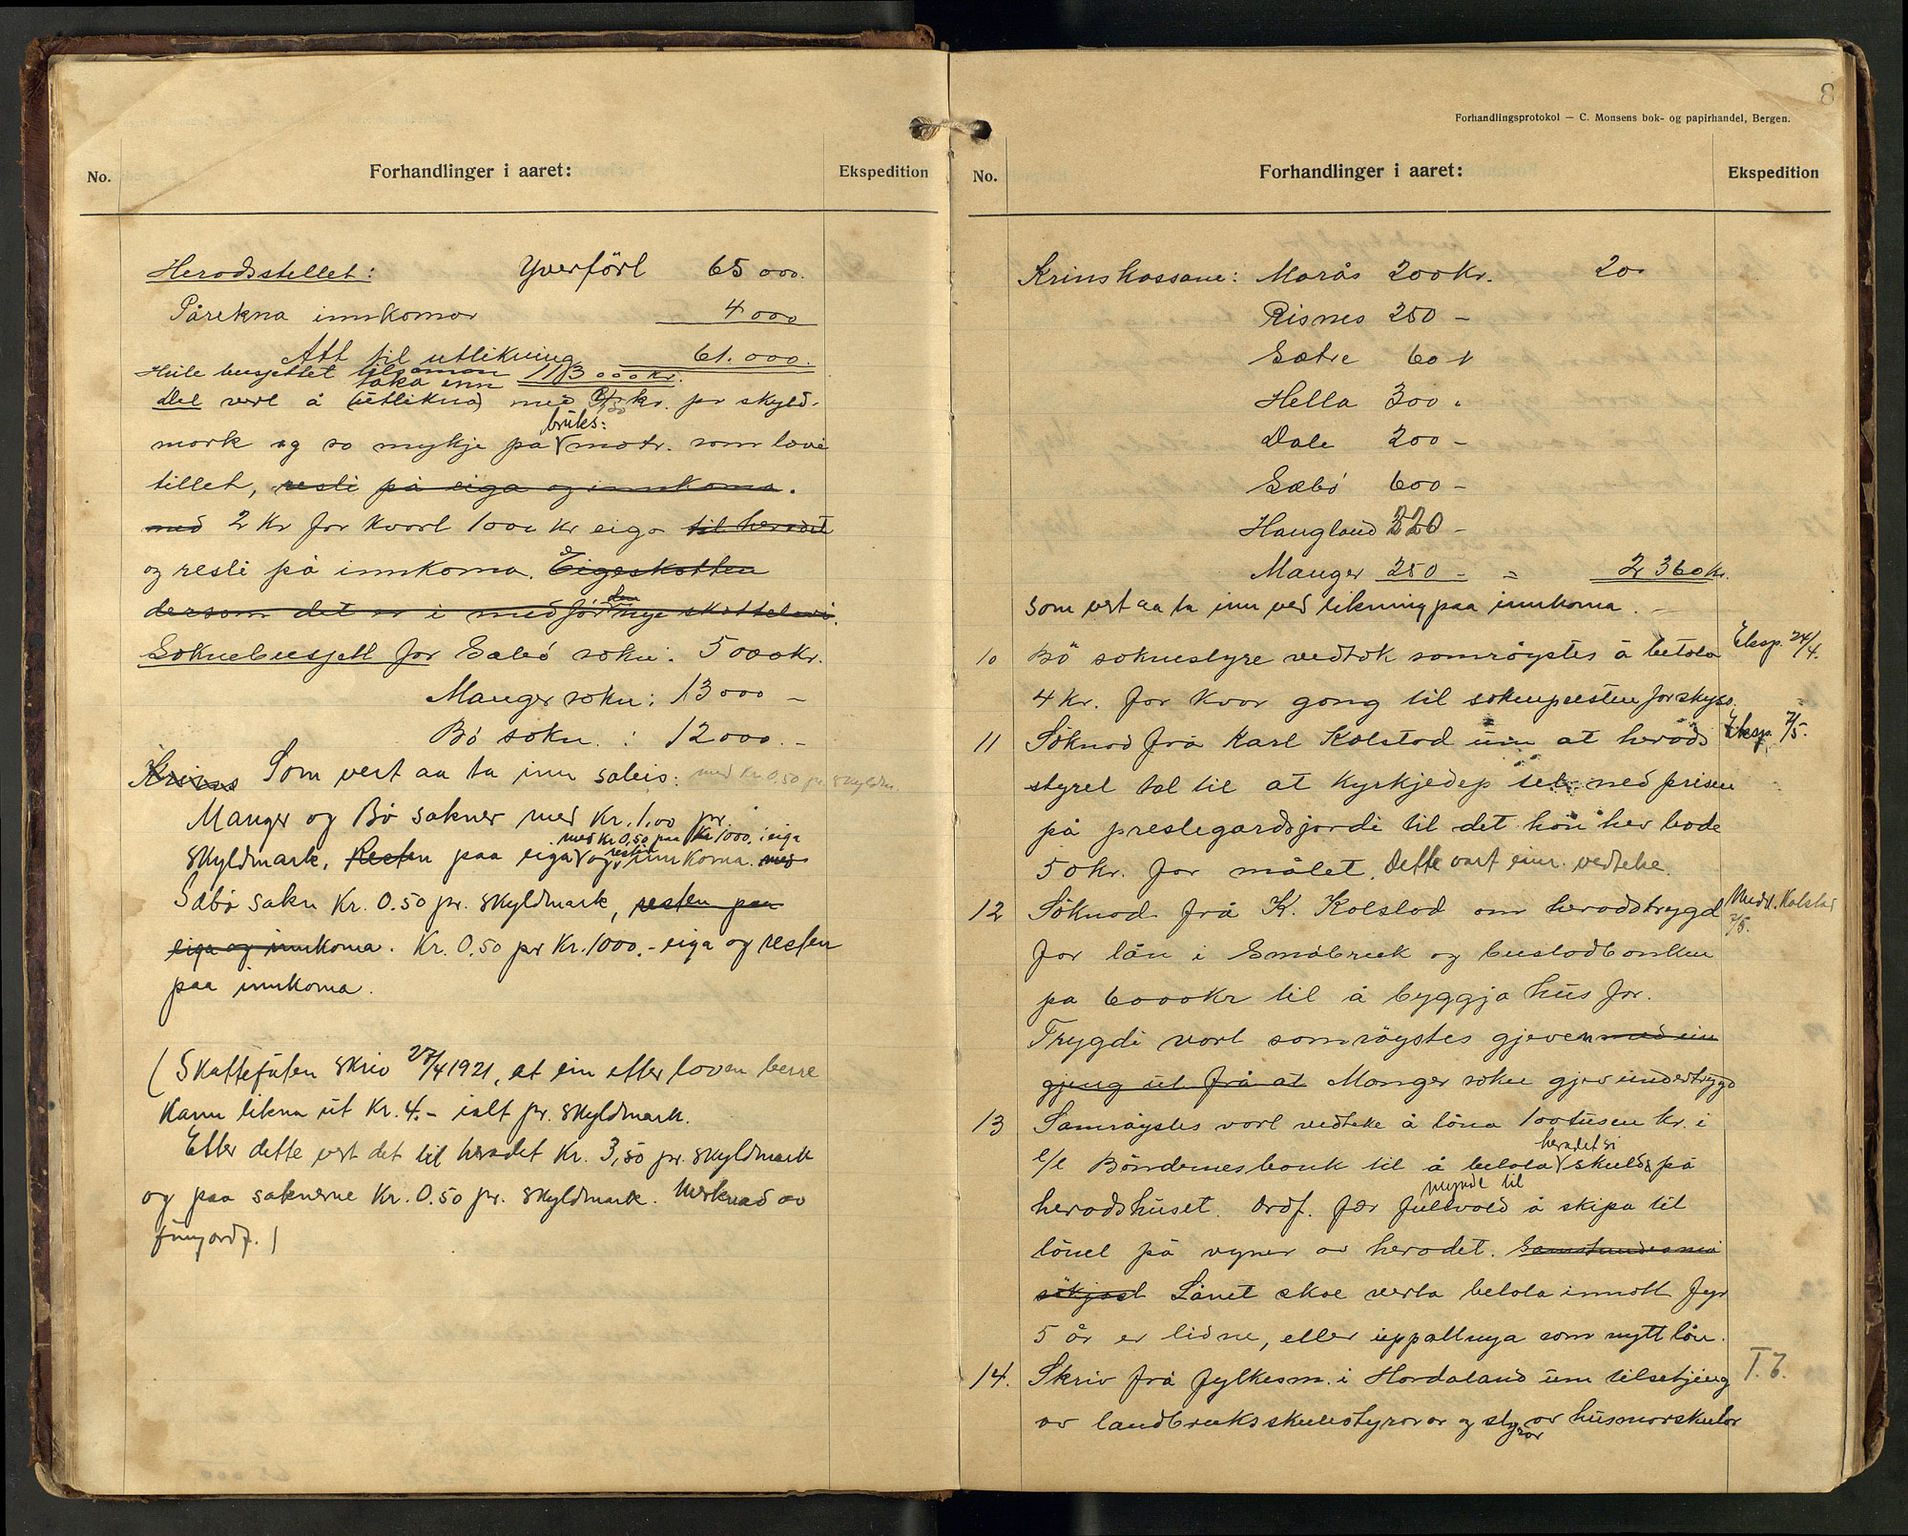 No.
Forhandlinger i aaret:
Ekspedition
Heradsstellet: Yverført 65 000.
Pårekna innkomor 4 000
Att til utlikning 61.000.
Heile busjettet tilsaman 113 000 kr.
Det vert å (utlikna) taka inn med kr. pr skyld-
mark og so mykje på bruks: matr. som lovi
tillet, resti på eiga og innkoma.
med 2 kr for kvart 1000 kr eiga til heradet
og resti på innkoma. Eigeskatten
dersom det er i medfør den nye skattelovi.
Soknebusjett for Sæbø sokn: 5 000 kr.
Manger sokn: 13 000 -
Bø sokn. : 12 000. -
Krins Som vert aa ta inn saleis: med Kr 0.50 pr. skyldm.
Manger og Bø sokner med Kr. 1.00 pr.
med Kr 0,50 pr Kr 1000, i eiga
Skyldmark, Resten paa eiga og resten innkoma. med
Sæbø sokn Kr. 0.50 pr. skyldmark, resten paa
eiga og innkoma. Kr. 0.50 pr Kr. 1000.- eiga og resten
paa innkoma.
(Skattefuten skriv 27/4 1921, at ein etter loven berre
kann likna ut Kr. 4.- ialt pr. skyldmark.
Etter dette vert det til heradet Kr. 3,50 pr. skyldmark
og paa soknerne Kr. 0.50 pr. skyldmark. Merknad av
fungordf.)
8
Forhandlingsprotokol — C. Monsens bok- og papirhandel, Bergen.
No.
Forhandlinger i aaret:
Ekspedition
Krinskassane: Marås 200 kr. 20
Risnes 250 -
Sætre 60
Hella 300
Dale 200 -
Sæbø 600 -
Haugland 320 -
Manger 250 - = 2 360 kr.
som vert aa ta inn ved likning paa innkoma. -
10 Bø soknestyre vedtok samrøystes å betala Eksp. 24/4.
4 kr. for kvar gong til soknepresten for skyss.
11 Søknad frå Karl Kolstad um at herads Eksp. 7/5.
styret tal til at Kyrkjedep set ned prisen
på prestegardsjordi til det hån her bode
50 kr. for målet. Dette vart einr. vedteke.
12 Søknad frå K. Kolstad om heradstrygd Medd. Kolstad 7/5.
for lån i Småbruk og bustadbanken
på 6000 kr til å byggja hus for.
Trygdi vart samrøystes gjeven med ein
gjeng ut frå at Manger sokn gjev undertrygd
13 Samrøystes vart vedteke å låna 100 tusen kr. i
l/l Bøndernes bank til å betala heradet si skuld på
heradshuset. Ordf. fær fullvald mynde til å skipa til
lånet på vegner av heradet. Samstundes må
søkjast Lånet skal verta betala innatt fyr
5 år er lidne, eller uppattnya som nytt lån.
14. Skriv frå fylkesm. i Hordaland um tilsetjing T.b.
av landbruksskulestyrar og styrar av husmorskular